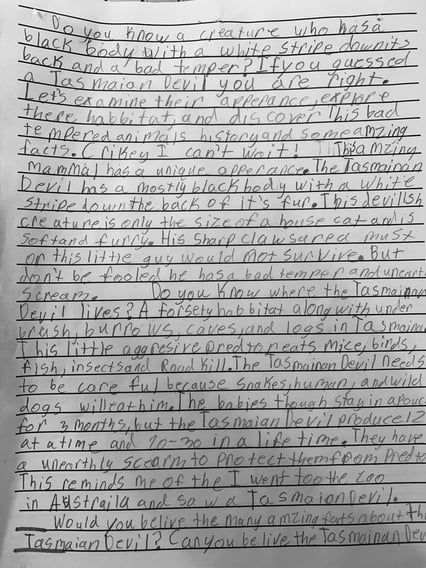 Do you know a creature who has a
black body with a white stripe down its
back and a bad temper? If you guessed
a Tasmaian Devil you are right.
Let's examine their apperance, explore
there habbitat, and discover this bad
tempered animals history and some amzing
facts. Crikey I can't wait! This amzing
mammal has a unique apperance. The Tasmainan
Devil has a mostly black body with a white
stripe down the back of it's fur. This devilish
creature is only the size of a house cat and is
soft and furry. His sharp claws are a must
or this little guy would not survive. But
don't be fooled he has a bad temper and
scream. Do you know where the Tasmainan
Devil lives? A forsety habbitat along with under
brush, burrows, caves, and logs in Tasmaina
This little aggresive predator eats mice, birds,
fish, insects and Road Kill. The Tasmainan Devil needs
to be care ful because snakes, human, and wild
dogs will eat him. The babies though stay in a pouch
for 3 months, but the Tasmaian Devil produce 12
at a time and 20-30 in a life time. They have
a unearthly scearm to protect them from
This reminds me of the I went too the zoo
in Australia and saw a Tasmaion Devil.
Would you belive the many amzing fats about th
Tasmaian Devil? Can you be live the Tasmainan Dev